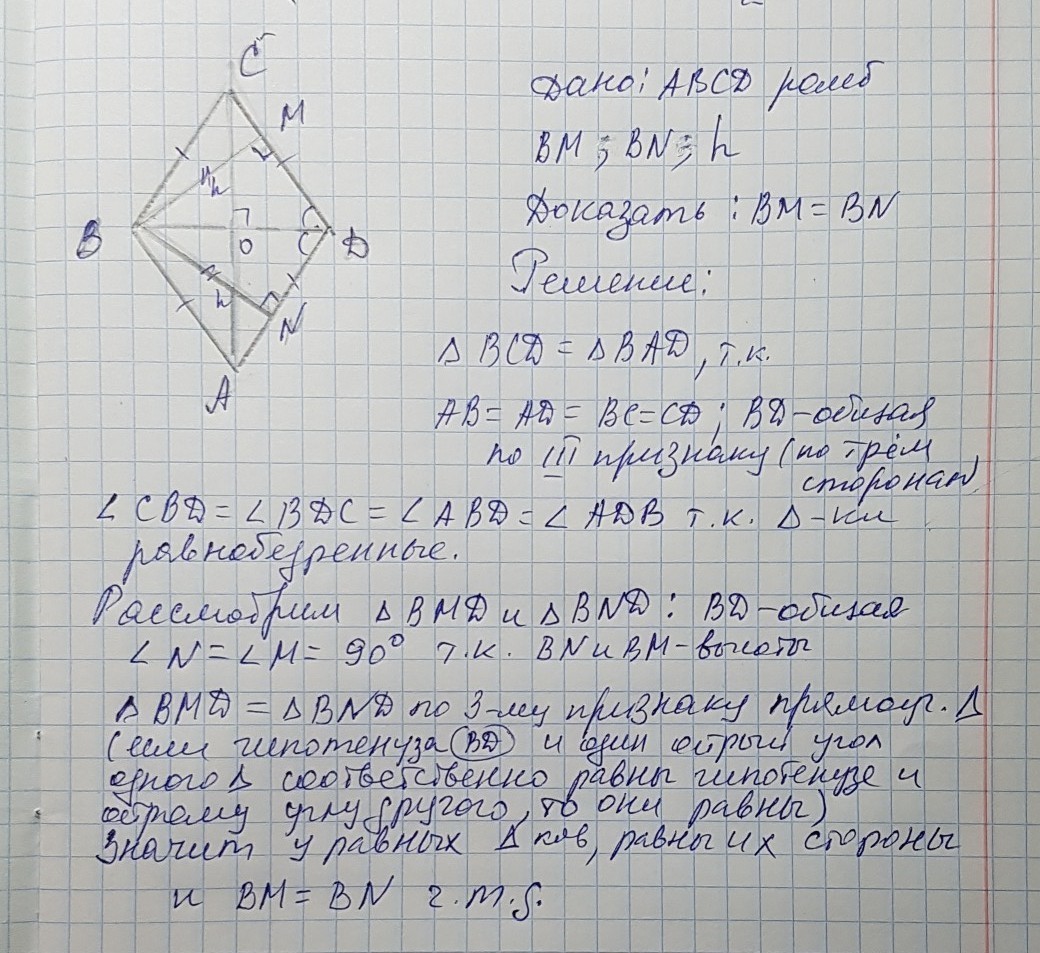 C
M
h
B
O
D
h
N
A
Дано: ABCD ромб
BM; BN; h
Доказать: BM = BN
Решение:
Δ BCD = Δ BAD, т.к.
AB = AD = BC = CD; BD – общая
по III признаку (по трём
сторонам)
∠ CBD = ∠ BDC = ∠ ABD = ∠ ADB т.к. Δ-ки
равнобедренные.
Рассмотрим Δ BMD и Δ BND: BD – общая
∠ N = ∠ M = 90° т.к. BN и BM – высоты
Δ BMD = Δ BND по 3-му признаку прямоуг. Δ
(если гипотенуза (BD) и один острый угол
одного Δ соответственно равны гипотенузе и
острому углу другого, то они равны)
Значит у равных Δ ков, равны их стороны
и BM = BN ч.т.д.